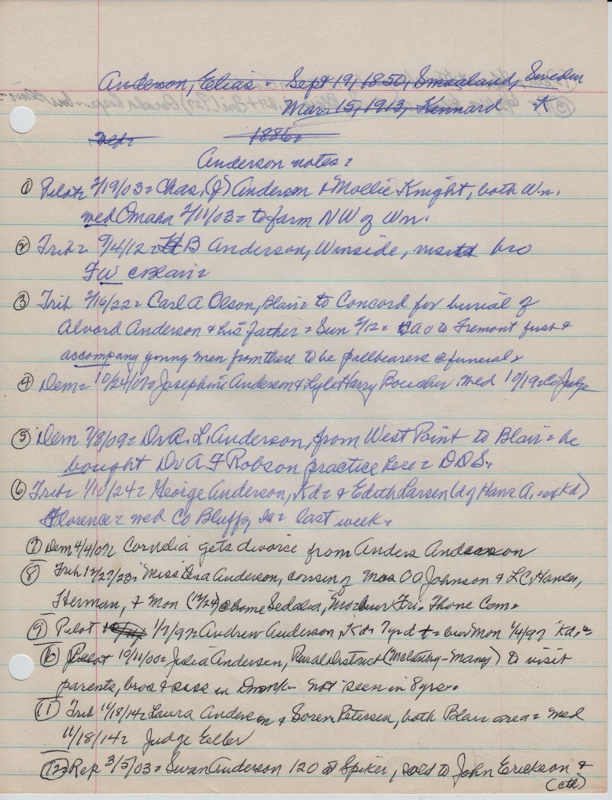 Anderson, Elias. Sept 19, 1850, Smaaland, Sweden
Mar. 15, 1913, Kennard
1886=
Anderson notes=
① Pilot= 2/19/03= Chas. (J) Anderson + Mollie Knight, both Wn.
wed Omaha 2/11/03= to farm NW of Wn.
② Trib= 9/4/12= B Anderson, Winside, visited bro
F W @ Blair=
③ Trib 2/16/22= Carl A Olson, Blair= to Concord for burial of
Alvord Anderson + his father = Sun 2/12= CAO to Fremont first &
accompany young men from there to be pallbearers @ funeral.
④ Dem= 10/24/07= Josephine Anderson & Lyle Harry Boucher wed 10/19= Co Judge
⑤ Dem 7/8/09= Dr R. L. Anderson, from West Point to Blair= he
bought Dr A F Robson practice here= D.D.S.
⑥ Trib= 1/10/24= George Anderson, Kd= & Edith Larsen (d of Hans A. of Kd)
Florence= wed Co Bluffs Ia= last week.
⑦ Dem 4/4/07= Cornelia gets divorce from Anders Anderson
⑧ Trib 12/27/23= Miss Anderson, cousin of Mrs O A Johnson & L C Hansen,
Herman, + Mon (12/24) @ home Sedalia, Mo= bur Fri. Thone Cem=
⑨ Pilot 1/7/97= Andrew Anderson, Kd= 7 yrs + = bur Mon 1/4/97 Kd.=
⑩ Pilot 10/11/00= Julia Andersen, Rural District to visit
parents, bros & sess in Dnmk= not seen in 8 yrs.
⑪ Trib 11/19/14= Laura Andersen & Soren Petersen, both Blair area= wed
11/18/14= Judge Eller
⑫= Rep 3/5/03= Swan Anderson 120 A Spiker, sold to John Erickson &
(ctd)